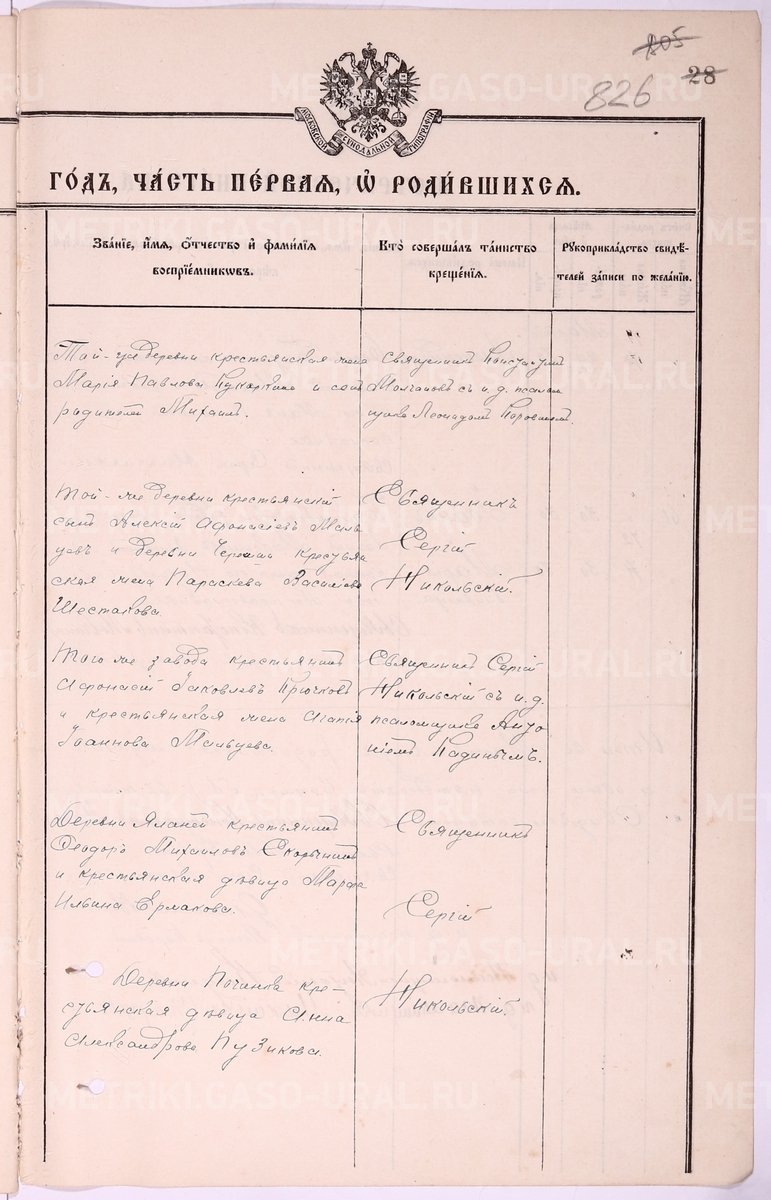 805
28
826
МОСКОВСКОЙ СѴНОДАЛЬНОЙ ТИПОГРАФІИ
ГО́ДЪ, ЧА́СТЬ ПЕ́РВАЯ, Ѡ҆ РОДИ́ВШИХСѦ.
Зва́нїе, и҆́мѧ, ѻ҆́тчество и҆ фами́лїѧ
воспрїе́мникѡвъ.
Кто̀ соверша́лъ та́инство
креще́нїѧ.
Рꙋкоприкла́дство свидѣ́-
телей за́писи по жела́нїю.
Той-же деревни крестьянская жена
Марія Павлова и сын
родителей Михаил.
Священникъ Константинъ
Молчановъ съ и. д. псалом
щика Леонидомъ
Той-же деревни крестьянскій
сынъ Алексій Афонасіевъ Маль
цевъ и деревни крестьян
ская жена Параскева Василіева
Шестакова.
Священникъ
Сергій
Никольскій.
Того же завода крестьянинъ
Афонасій Іаковлевъ Крючковъ
и крестьянская жена Агапія
Іоаннова Мальцева.
Священникъ Сергій
Никольскій съ и. д.
псаломщика Анто
ніемъ Кадинымъ.
Деревни Яланей крестьянинъ
Феодоръ Михаиловъ Скорынинъ
и крестьянская дѣвица Марфа
Ильина Ермакова.
Священникъ
Сергій
Никольскій.
Деревни Починка кре-
стьянская дѣвица Анна
Александрова Пузикова.
METRIKI.GASO-URAL.RU